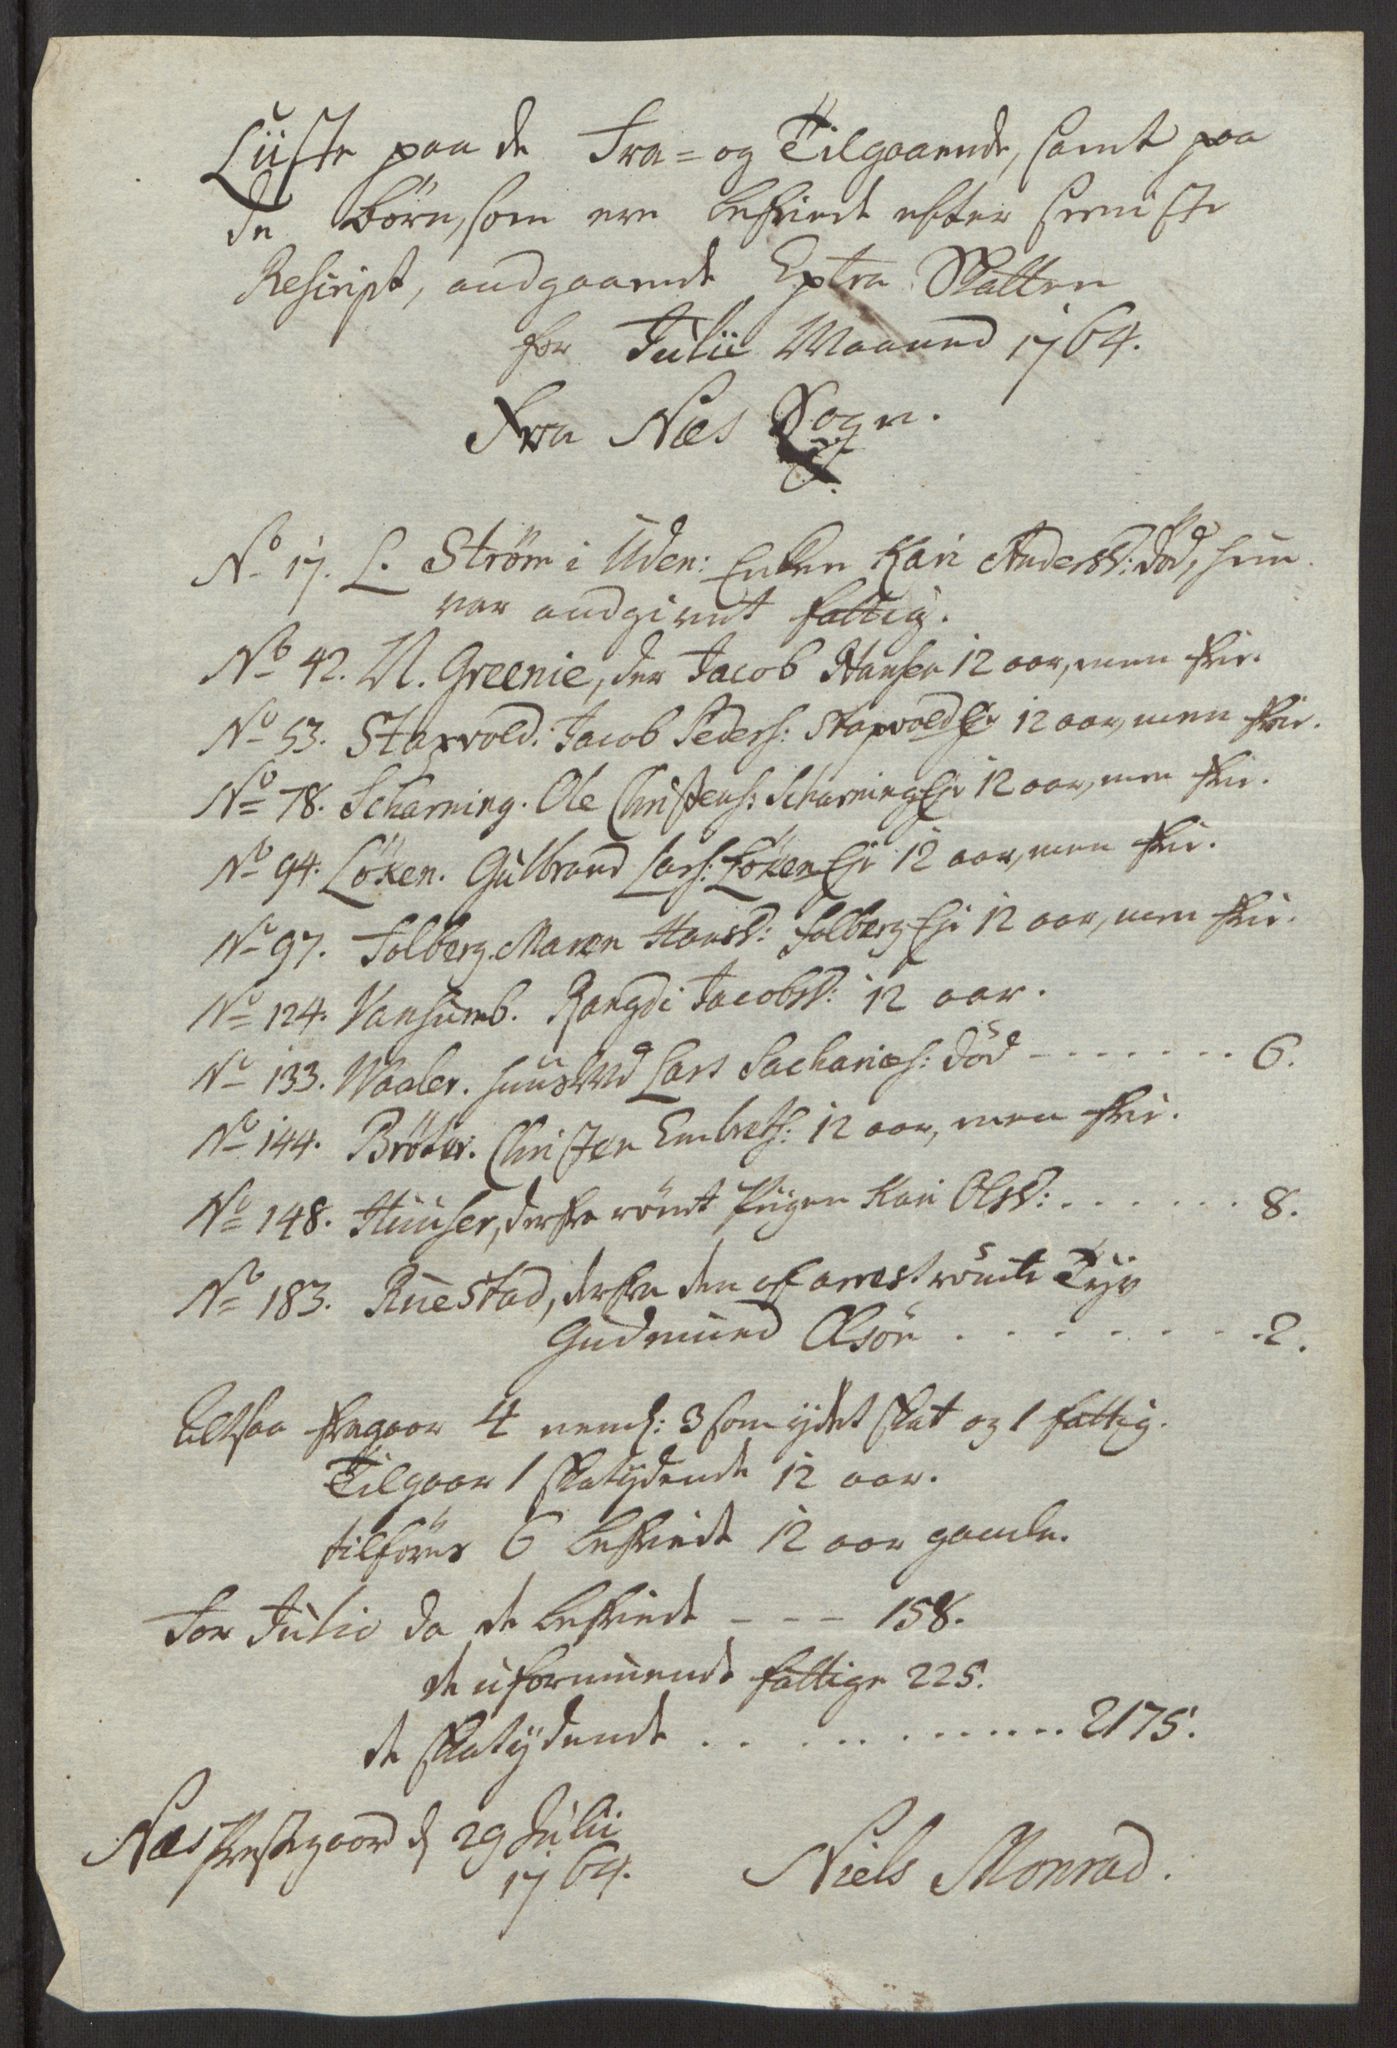 Liiste paa de Fra= og Tilgaaende, samt paa
de börn, som ere befriede efter seeniste
Rescript, andgaaende Extra Skatten
for Julii Maaned 1764.
Fra Næs Sogn.
No 17. L. Ström i Uden: Enken Kari Andersd: död, hun
var andgivet fattig.
No 42. N. Greenie, der Jacob Hansen 12 aar, men frie.
No 53. Staxvold. Jacob Peders: Staxvold Eje 12 aar, men frie.
No 78. Scharning. Ole Christens: Scharning Eje 12 aar, men frie.
No 94. Löken. Gulbrand Lars: Löken Eje 12 aar, men frie.
No 97. Solberg. Maren Hansd: Solberg Eje 12 aar, men frie.
No 124. Vansumb. Rangdi Jacobsd: 12 aar.
No 133. Waaler. huusmd Lars Sacharies: död - - - - - - - 6.
No 144. Bröter. Christen Embrets: 12 aar, men frie.
No 148. Huuser, derfra römt Piigen Kari Olsd: . . . . . . . 8.
No 183. Ruestad, derfra den af arrest römte Tyv
Gudmund Olsön . . . . . . . . 2.
Altsaa fragaar 4 neml: 3 som ydet skat og 1 fattig.
Tilgaar 1 skatydende 12 aar.
tilföres 6 befriede 12 aar gamle.
For Julio da de befriede - - - 158.
de uformuende fattige 225.
de skatydende . . . . . . . . . . . . 2175.
Næs Præstegaard d 29 Julii
1764.
Niels Monrad.